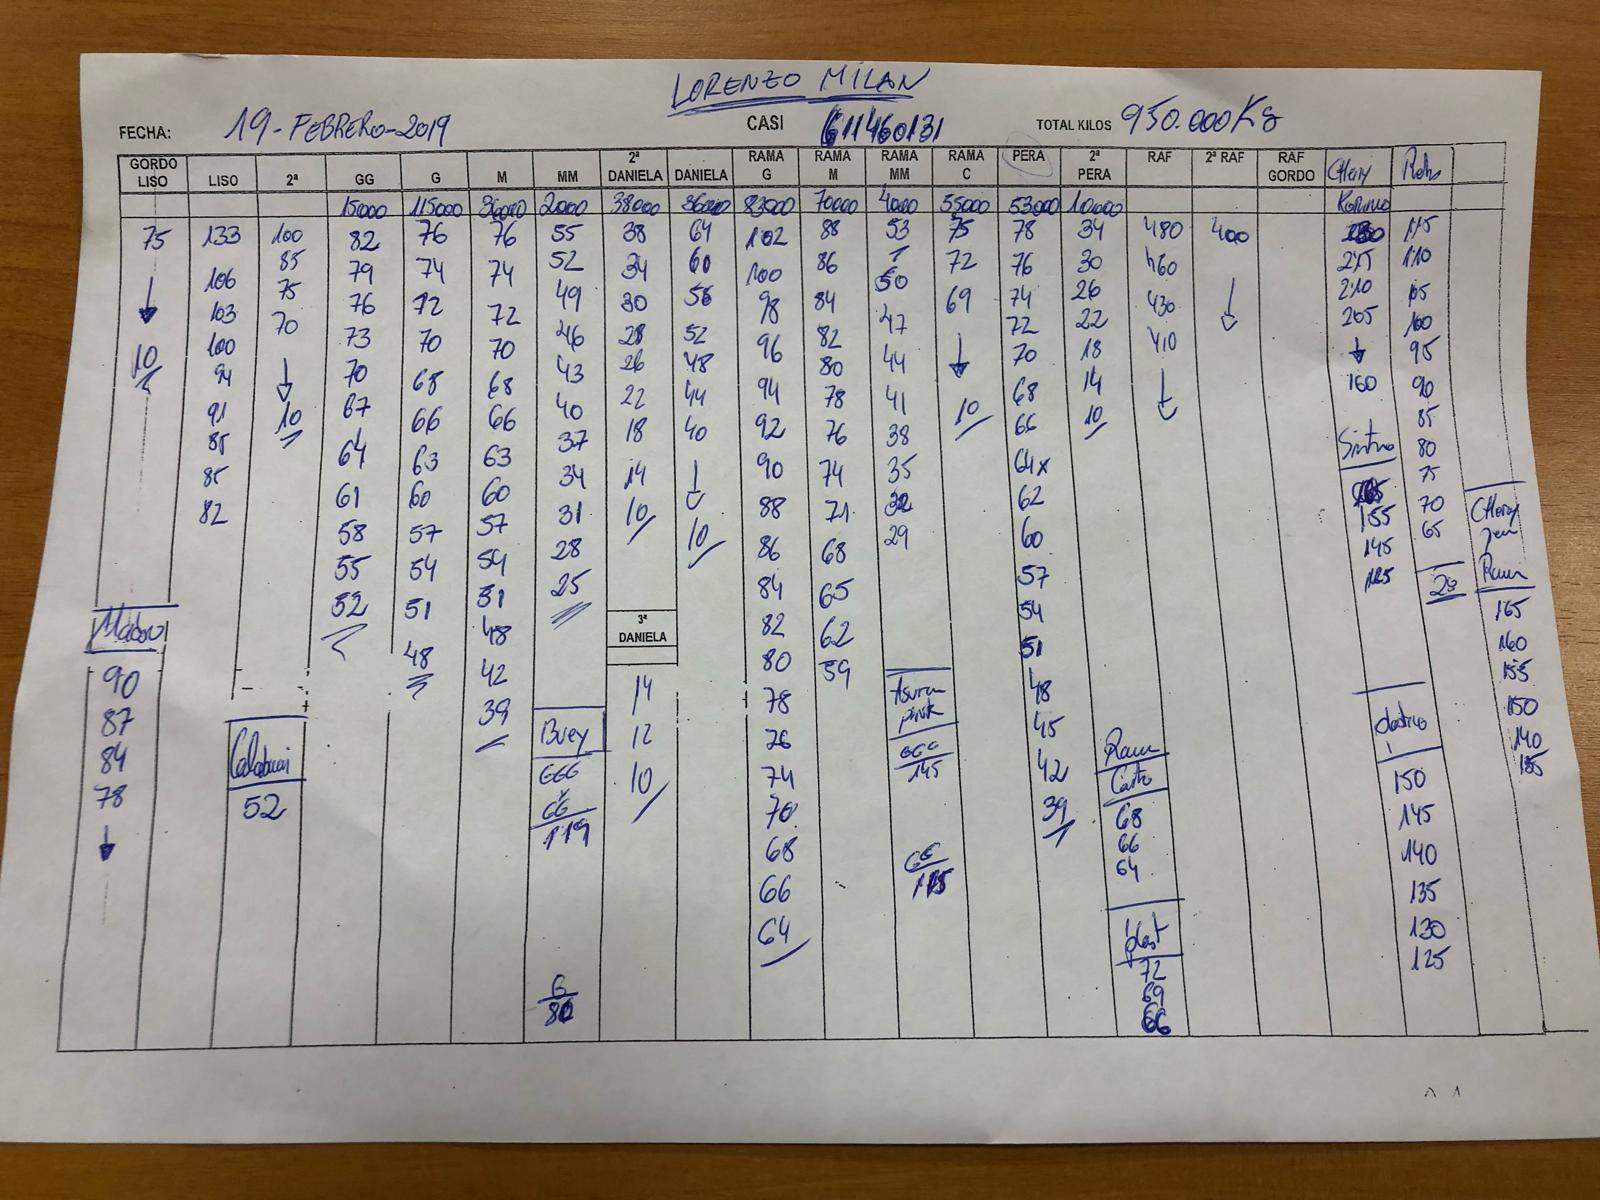 LORENZO MILAN
FECHA: 19-FEBRERO-2019 CASI 611460131 TOTAL KILOS 950.000Kg
GORDO LISO LISO 2ª GG G M MM 2ª DANIELA DANIELA RAMA G RAMA M RAMA MM RAMA C PERA 2ª PERA RAF 2ª RAF RAF GORDO Cherry
15000 115000 36000 2000 38000 36000 83000 70000 4000 55000 53000 10000
75 133 100 82 76 76 55 38 64 102 88 53 75 78 34 480 400 115
106 85 79 74 74 52 34 60 100 86 50 72 76 30 460 215 110
103 75 76 72 72 49 30 56 98 84 47 69 74 26 430 210 105
100 70 73 70 70 46 28 52 96 82 44 72 22 410 205 100
10 94 70 68 68 43 26 48 94 80 41 70 18 160 95
91 10 67 66 66 40 22 44 92 78 38 10 68 14 90
85 64 63 63 37 18 40 90 76 35 66 10 85
85 61 60 60 34 14 88 74 32 64x 80
82 58 57 57 31 10 10 86 71 29 62 155 75
55 54 54 28 84 68 60 145 70
52 51 51 25 82 65 57 125 65
48 48 80 62 54
42 78 59 51
39 76 48
74 45
70 42
68 39
66
64
90
87
84
78
52
Buey
GGG
GG
119
G
80
3ª
DANIELA
14
12
10
pink
GGG
145
GG
115
Ram
68
66
64
plast
72
69
66
150
145
140
135
130
125
Cherry
Ram
165
160
155
150
140
135